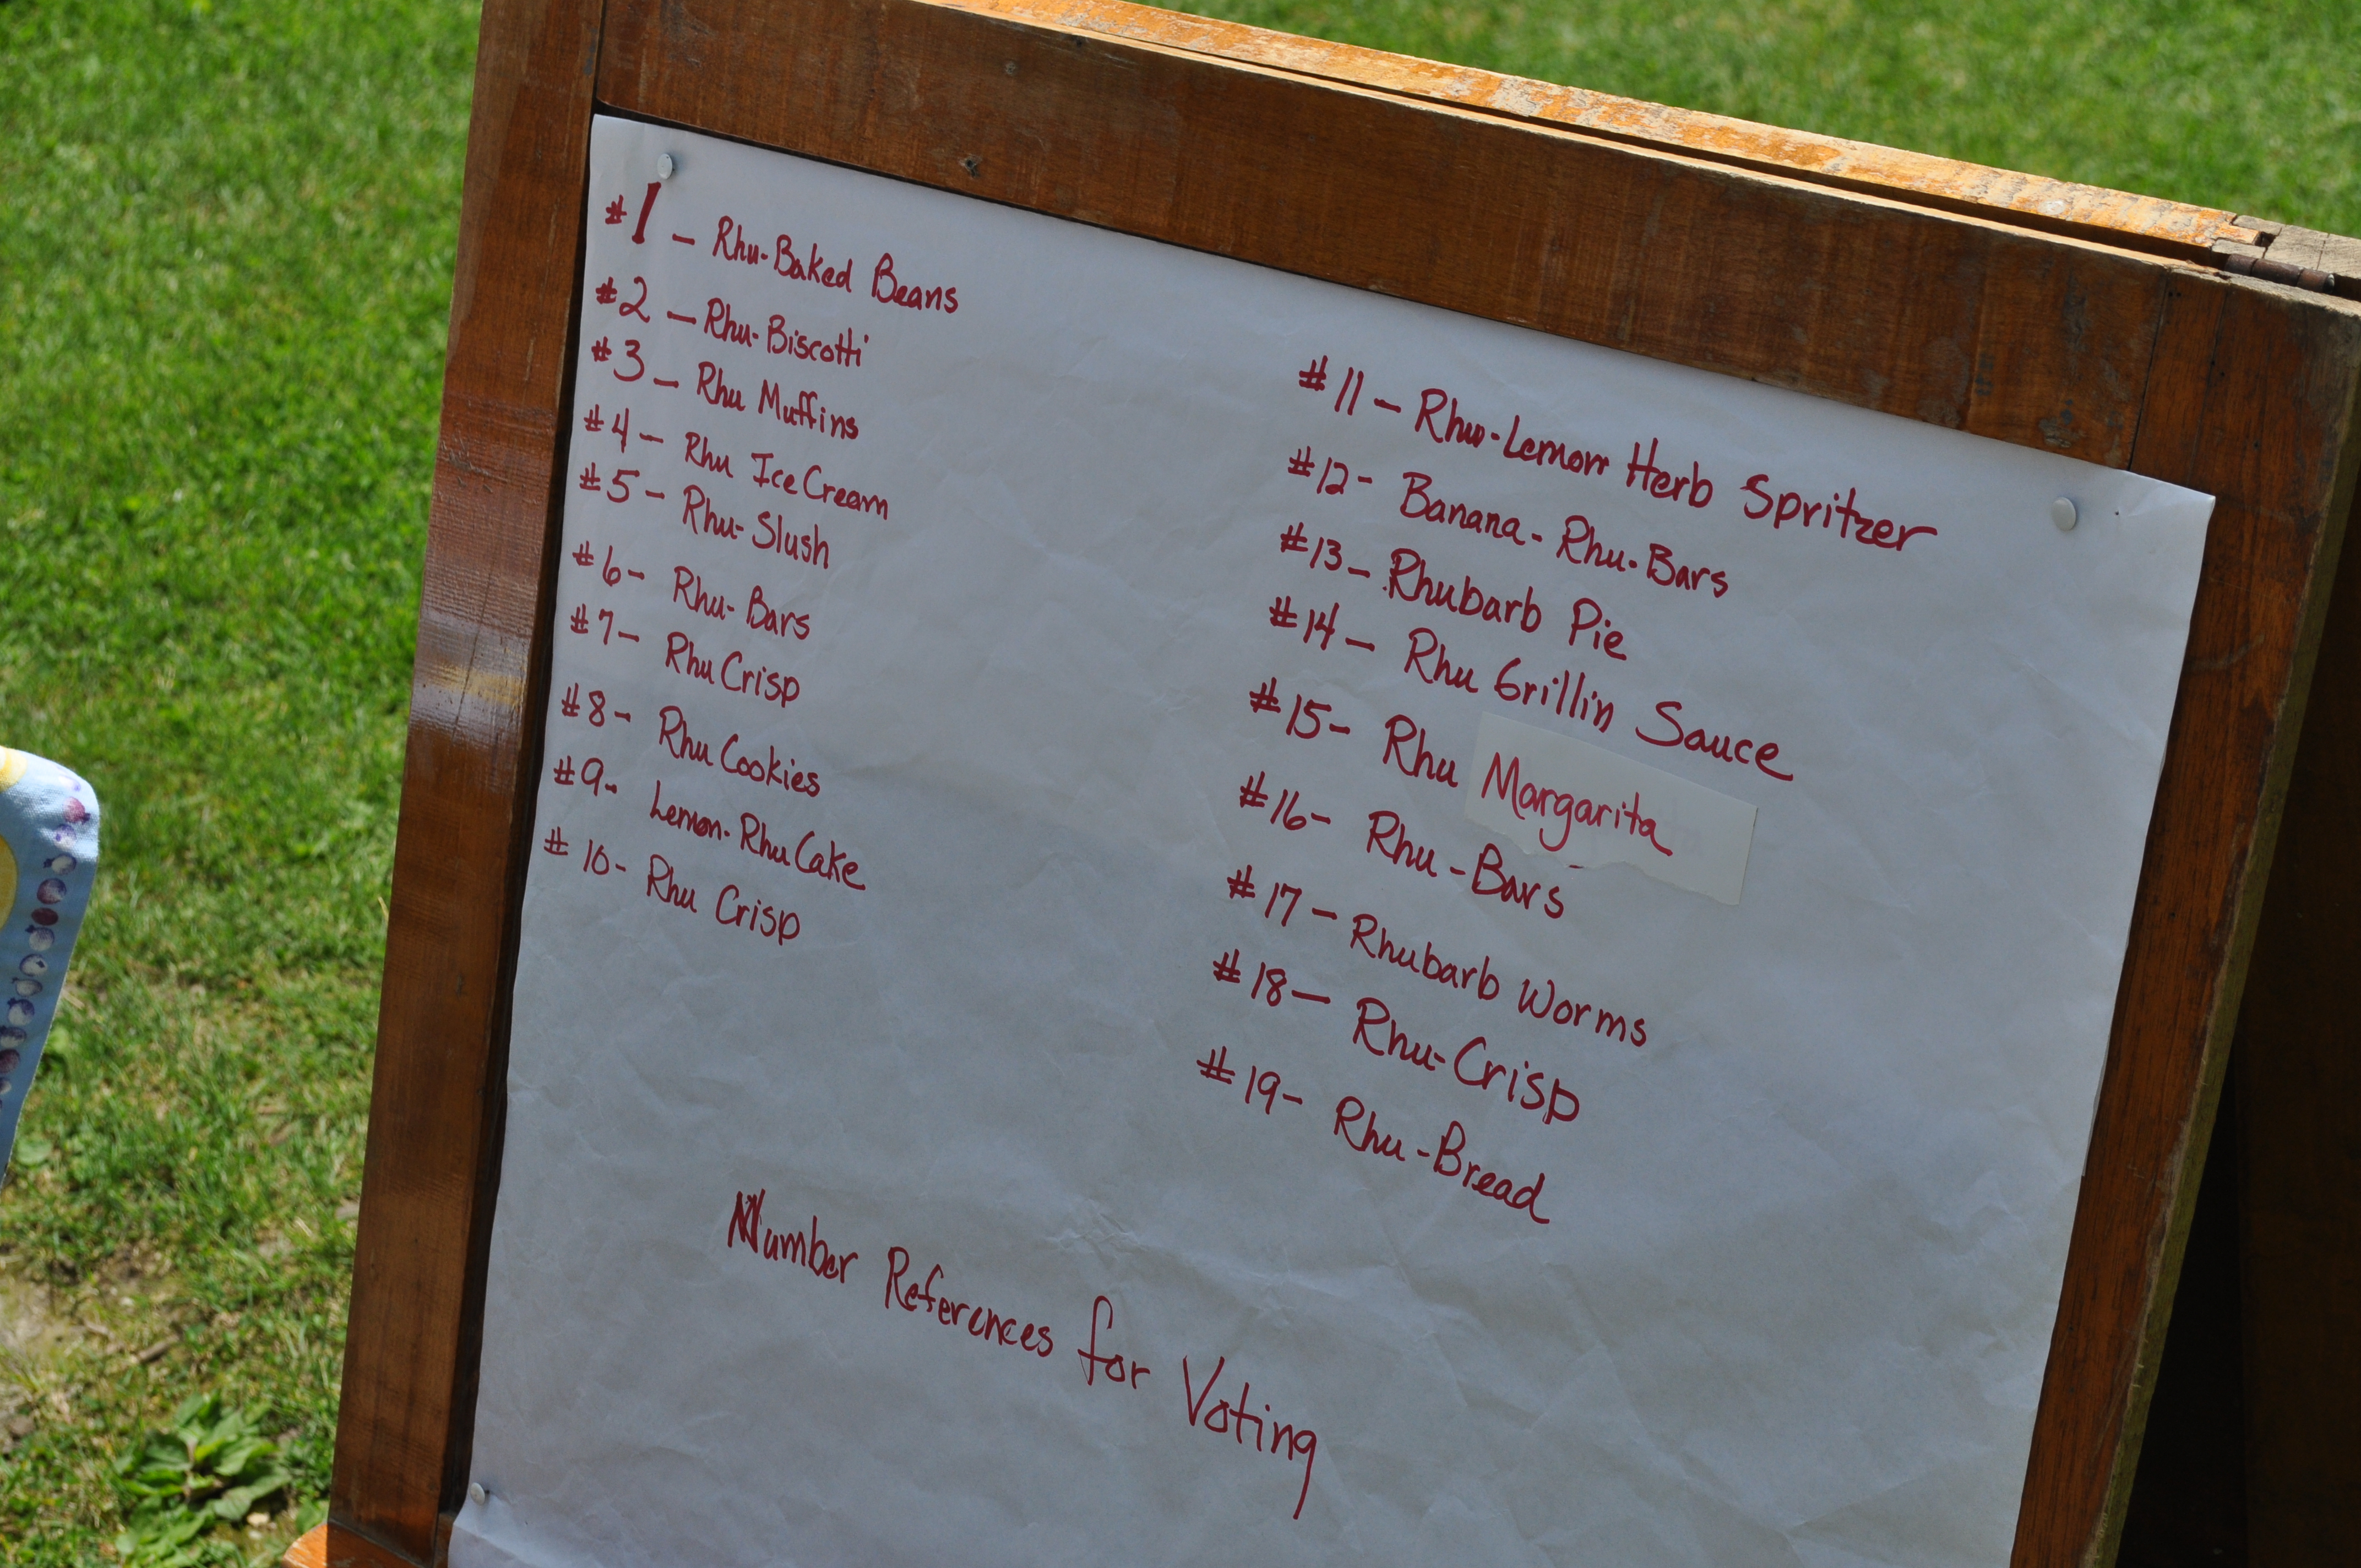 #1 - Rhu-Baked Beans
#2 - Rhu-Biscotti
#3 - Rhu Muffins
#4 - Rhu Ice Cream
#5 - Rhu-Slush
#6 - Rhu-Bars
#7 - Rhu Crisp
#8 - Rhu Cookies
#9 - Lemon-Rhu Cake
#10 - Rhu Crisp
#11 - Rhu-Lemon Herb Spritzer
#12 - Banana-Rhu-Bars
#13 - Rhubarb Pie
#14 - Rhu Grillin Sauce
#15 - Rhu Margarita
#16 - Rhu-Bars
#17 - Rhubarb Worms
#18 - Rhu-Crisp
#19 - Rhu-Bread
Number References for Voting